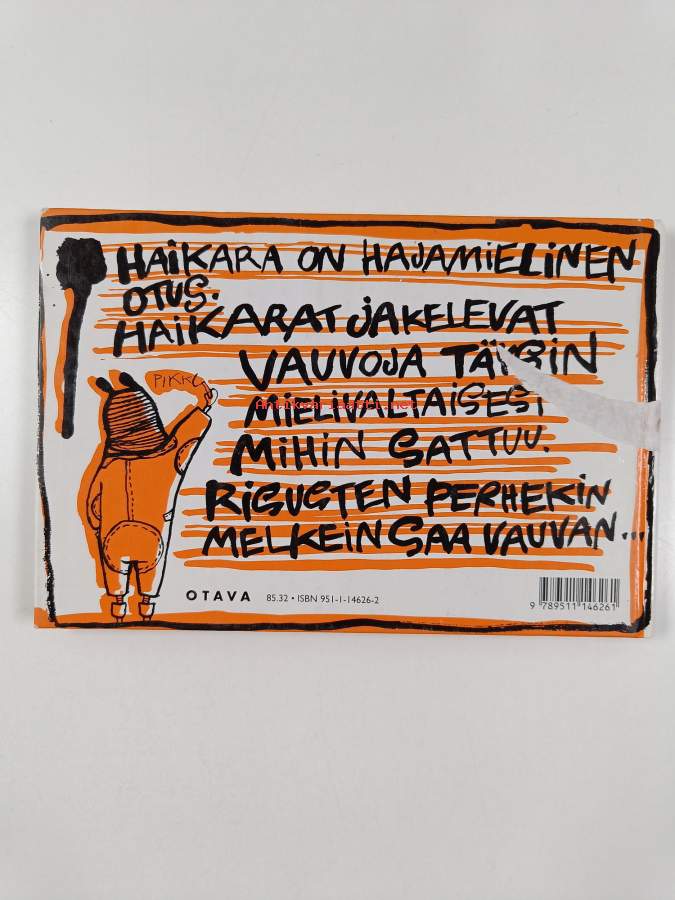 HAIKARA ON HAJAMIELINEN
OTUS.
HAIKARAT JAKELEVAT
VAUVOJA TÄYSIN
PIKKU
MIELIVALTAISESTI
Antikvariaatti.net
MIHIN SATTUU.
RISUSTEN PERHEKIN
MELKEIN SAA VAUVAN...
OTAVA 85.32 • ISBN 951-1-14626-2
9 789511 146261